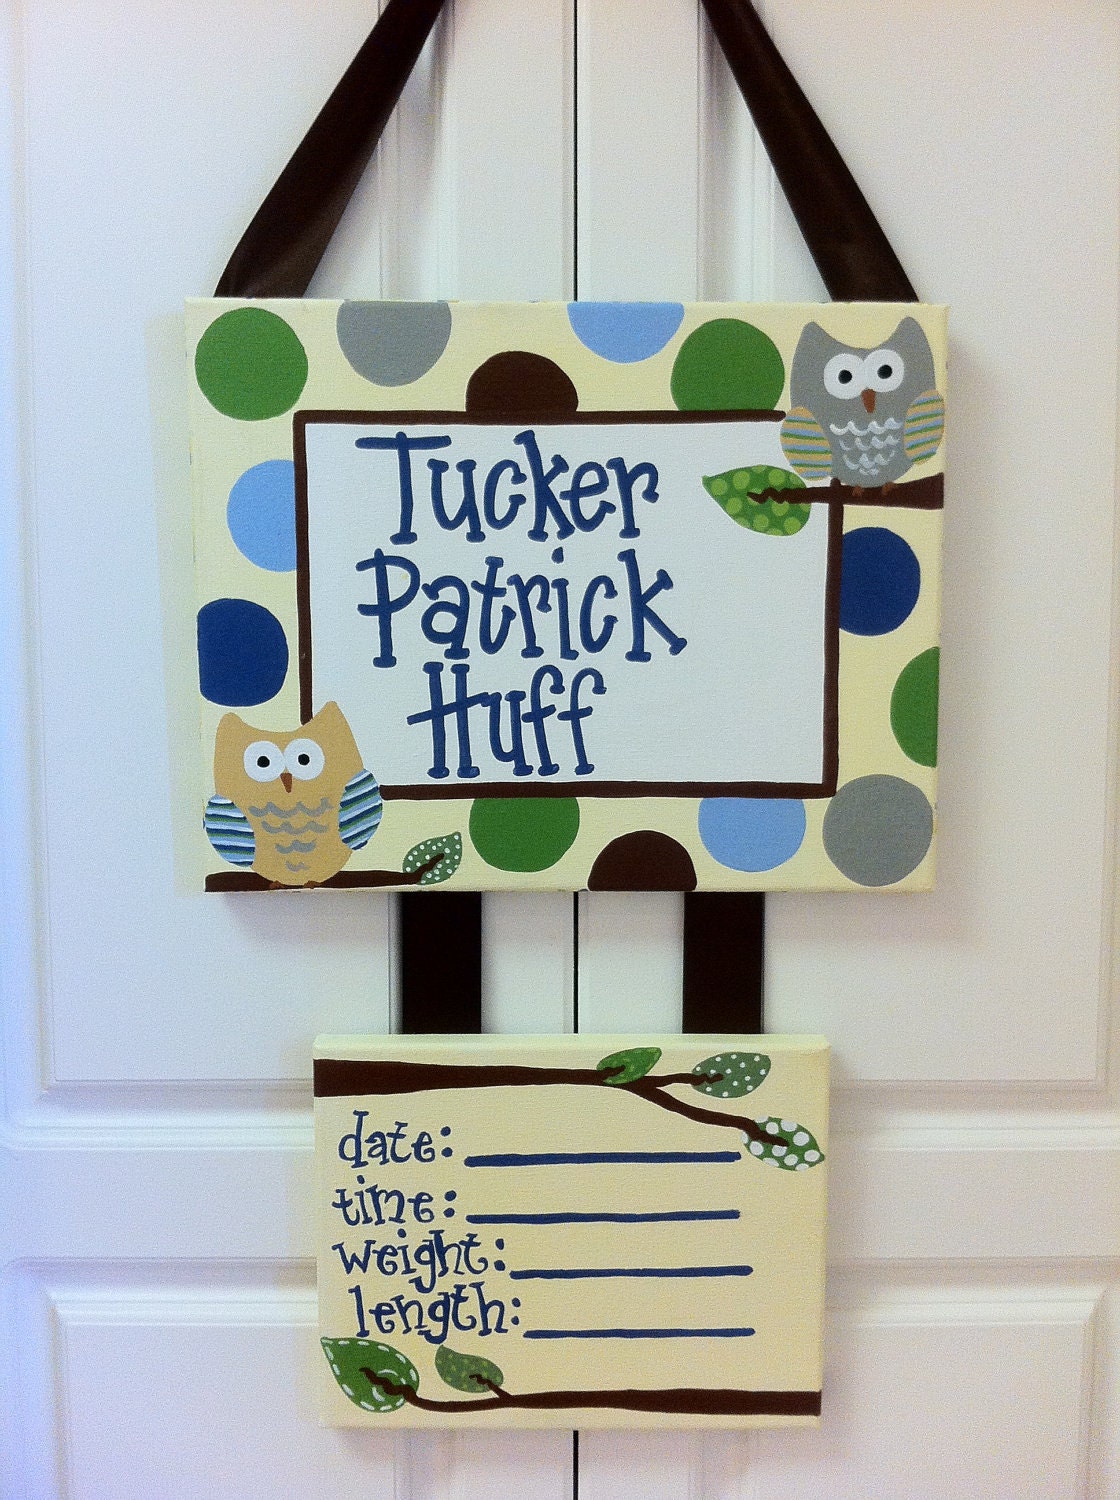 Tucker
Patrick
Huff
date:
time:
weight:
length: